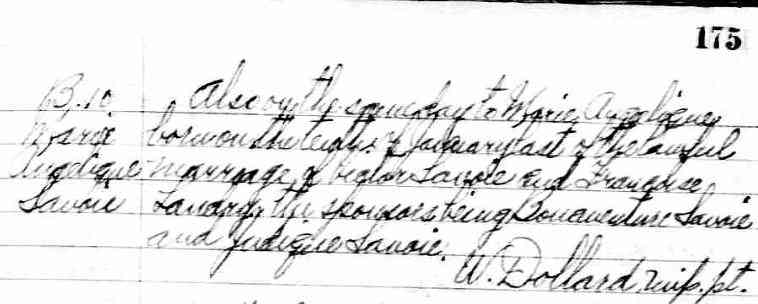 175
B. 10 Also on the same day to Marie Angelique
Marie born on the tenth of January last of the lawful
Angelique marriage of Victor Savoie and Françoise
Savoie Landry, the sponsors being Bonaventure Savoie
and Savoie.
W. Dollard, mis. pt.